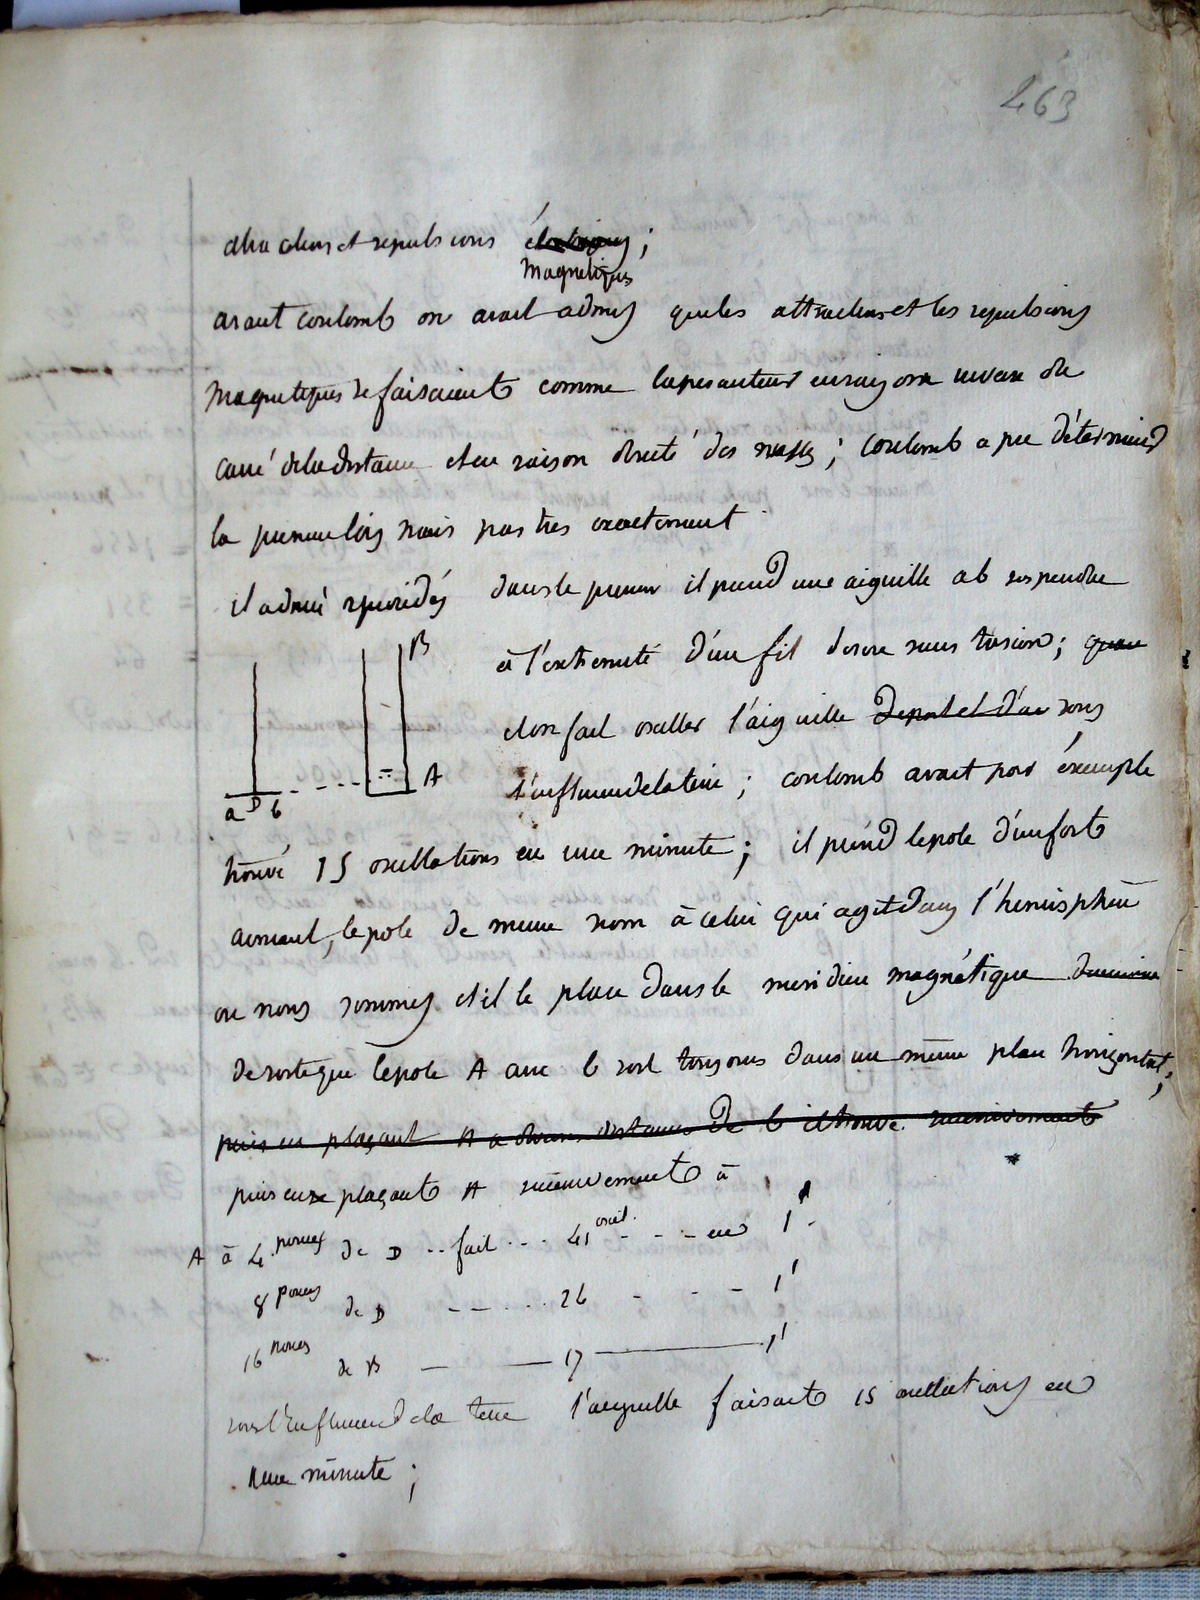 263
attractions et repulsions électriques ;
magnetiques
avant coulomb on avait admis que les attractions et les repulsions
magnetiques se faisaient comme la pesanteur en raison inverse du
carré de la distance et en raison directe des masses ; coulomb a pu déterminer
la premiere loix mais pas tres exactement
il admit 2 procédés dans le premier il prend une aiguille ab suspendue
à l'extremité d'un fil de soie sans torsion ;
B
et on fait osciller l'aiguille sous
A
a D b
l'influence de la terre ; coulomb avait par éxemple
trouvé 15 oscillations en une minute ; il prénd le pole d'un fort
aimant, le pole de meme nom à celui qui agit dans l'hémisphère
ou nous sommes et il le place dans le meridien magnétique
de sorte que le pole A avec b soit toujours dans un même plan horizontal ;
puis en plaçant A a diverses distances de b il trouve successivement
puis en plaçant A successivement à
A à 4 pouces de D .. fait ... 41 oscil. - - - en 1'
8 pouces de D - - ... 24 - - - 1'
16 pouces de D — — 17 — 1'
sous l'influence de la terre l'aiguille faisait 15 oscillations en
une minute ;